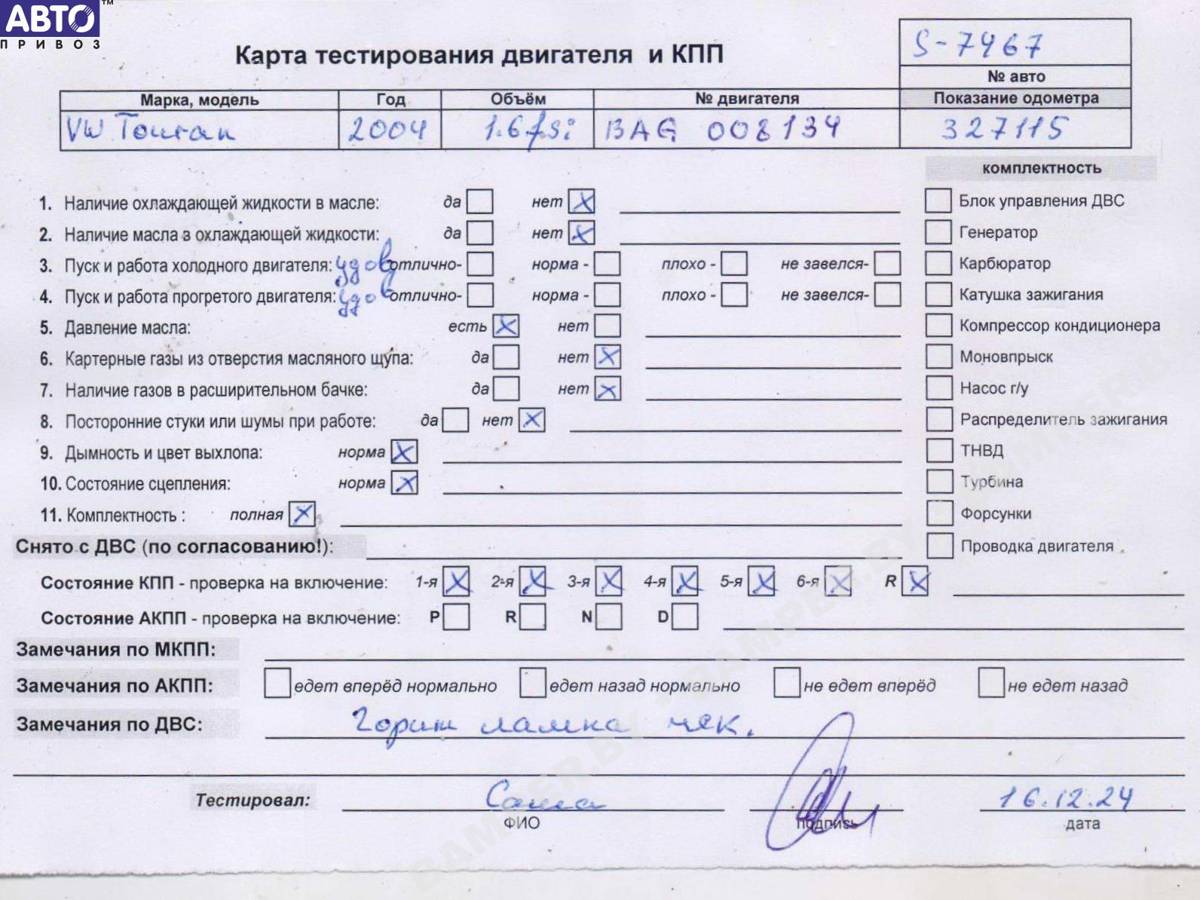 АВТО™
ПРИВОЗ
Карта тестирования двигателя и КПП
S-7467
№ авто
Марка, модель Год Объём № двигателя Показание одометра
VW Touran 2004 1.6 fsi BAG 008134 327115
комплектность
1. Наличие охлаждающей жидкости в масле: да нет X
Блок управления ДВС
2. Наличие масла в охлаждающей жидкости: да нет X
Генератор
3. Пуск и работа холодного двигателя: удов отлично- норма - плохо - не завелся-
Карбюратор
4. Пуск и работа прогретого двигателя: удов отлично- норма - плохо - не завелся-
Катушка зажигания
5. Давление масла: есть X нет
Компрессор кондиционера
6. Картерные газы из отверстия масляного щупа: да нет X
Моновпрыск
7. Наличие газов в расширительном бачке: да нет X
Насос г/у
8. Посторонние стуки или шумы при работе: да нет X
Распределитель зажигания
9. Дымность и цвет выхлопа: норма X
ТНВД
10. Состояние сцепления: норма X
Турбина
11. Комплектность : полная X
Форсунки
Снято с ДВС (по согласованию!):
Проводка двигателя
Состояние КПП - проверка на включение: 1-я X 2-я X 3-я X 4-я X 5-я X 6-я X R X
Состояние АКПП - проверка на включение: P R N D
Замечания по МКПП:
Замечания по АКПП: едет вперёд нормально едет назад нормально не едет вперёд не едет назад
Замечания по ДВС: Горит лампа чек.
Тестировал: Саша 16.12.24
ФИО подпись дата
BAMPER.BY